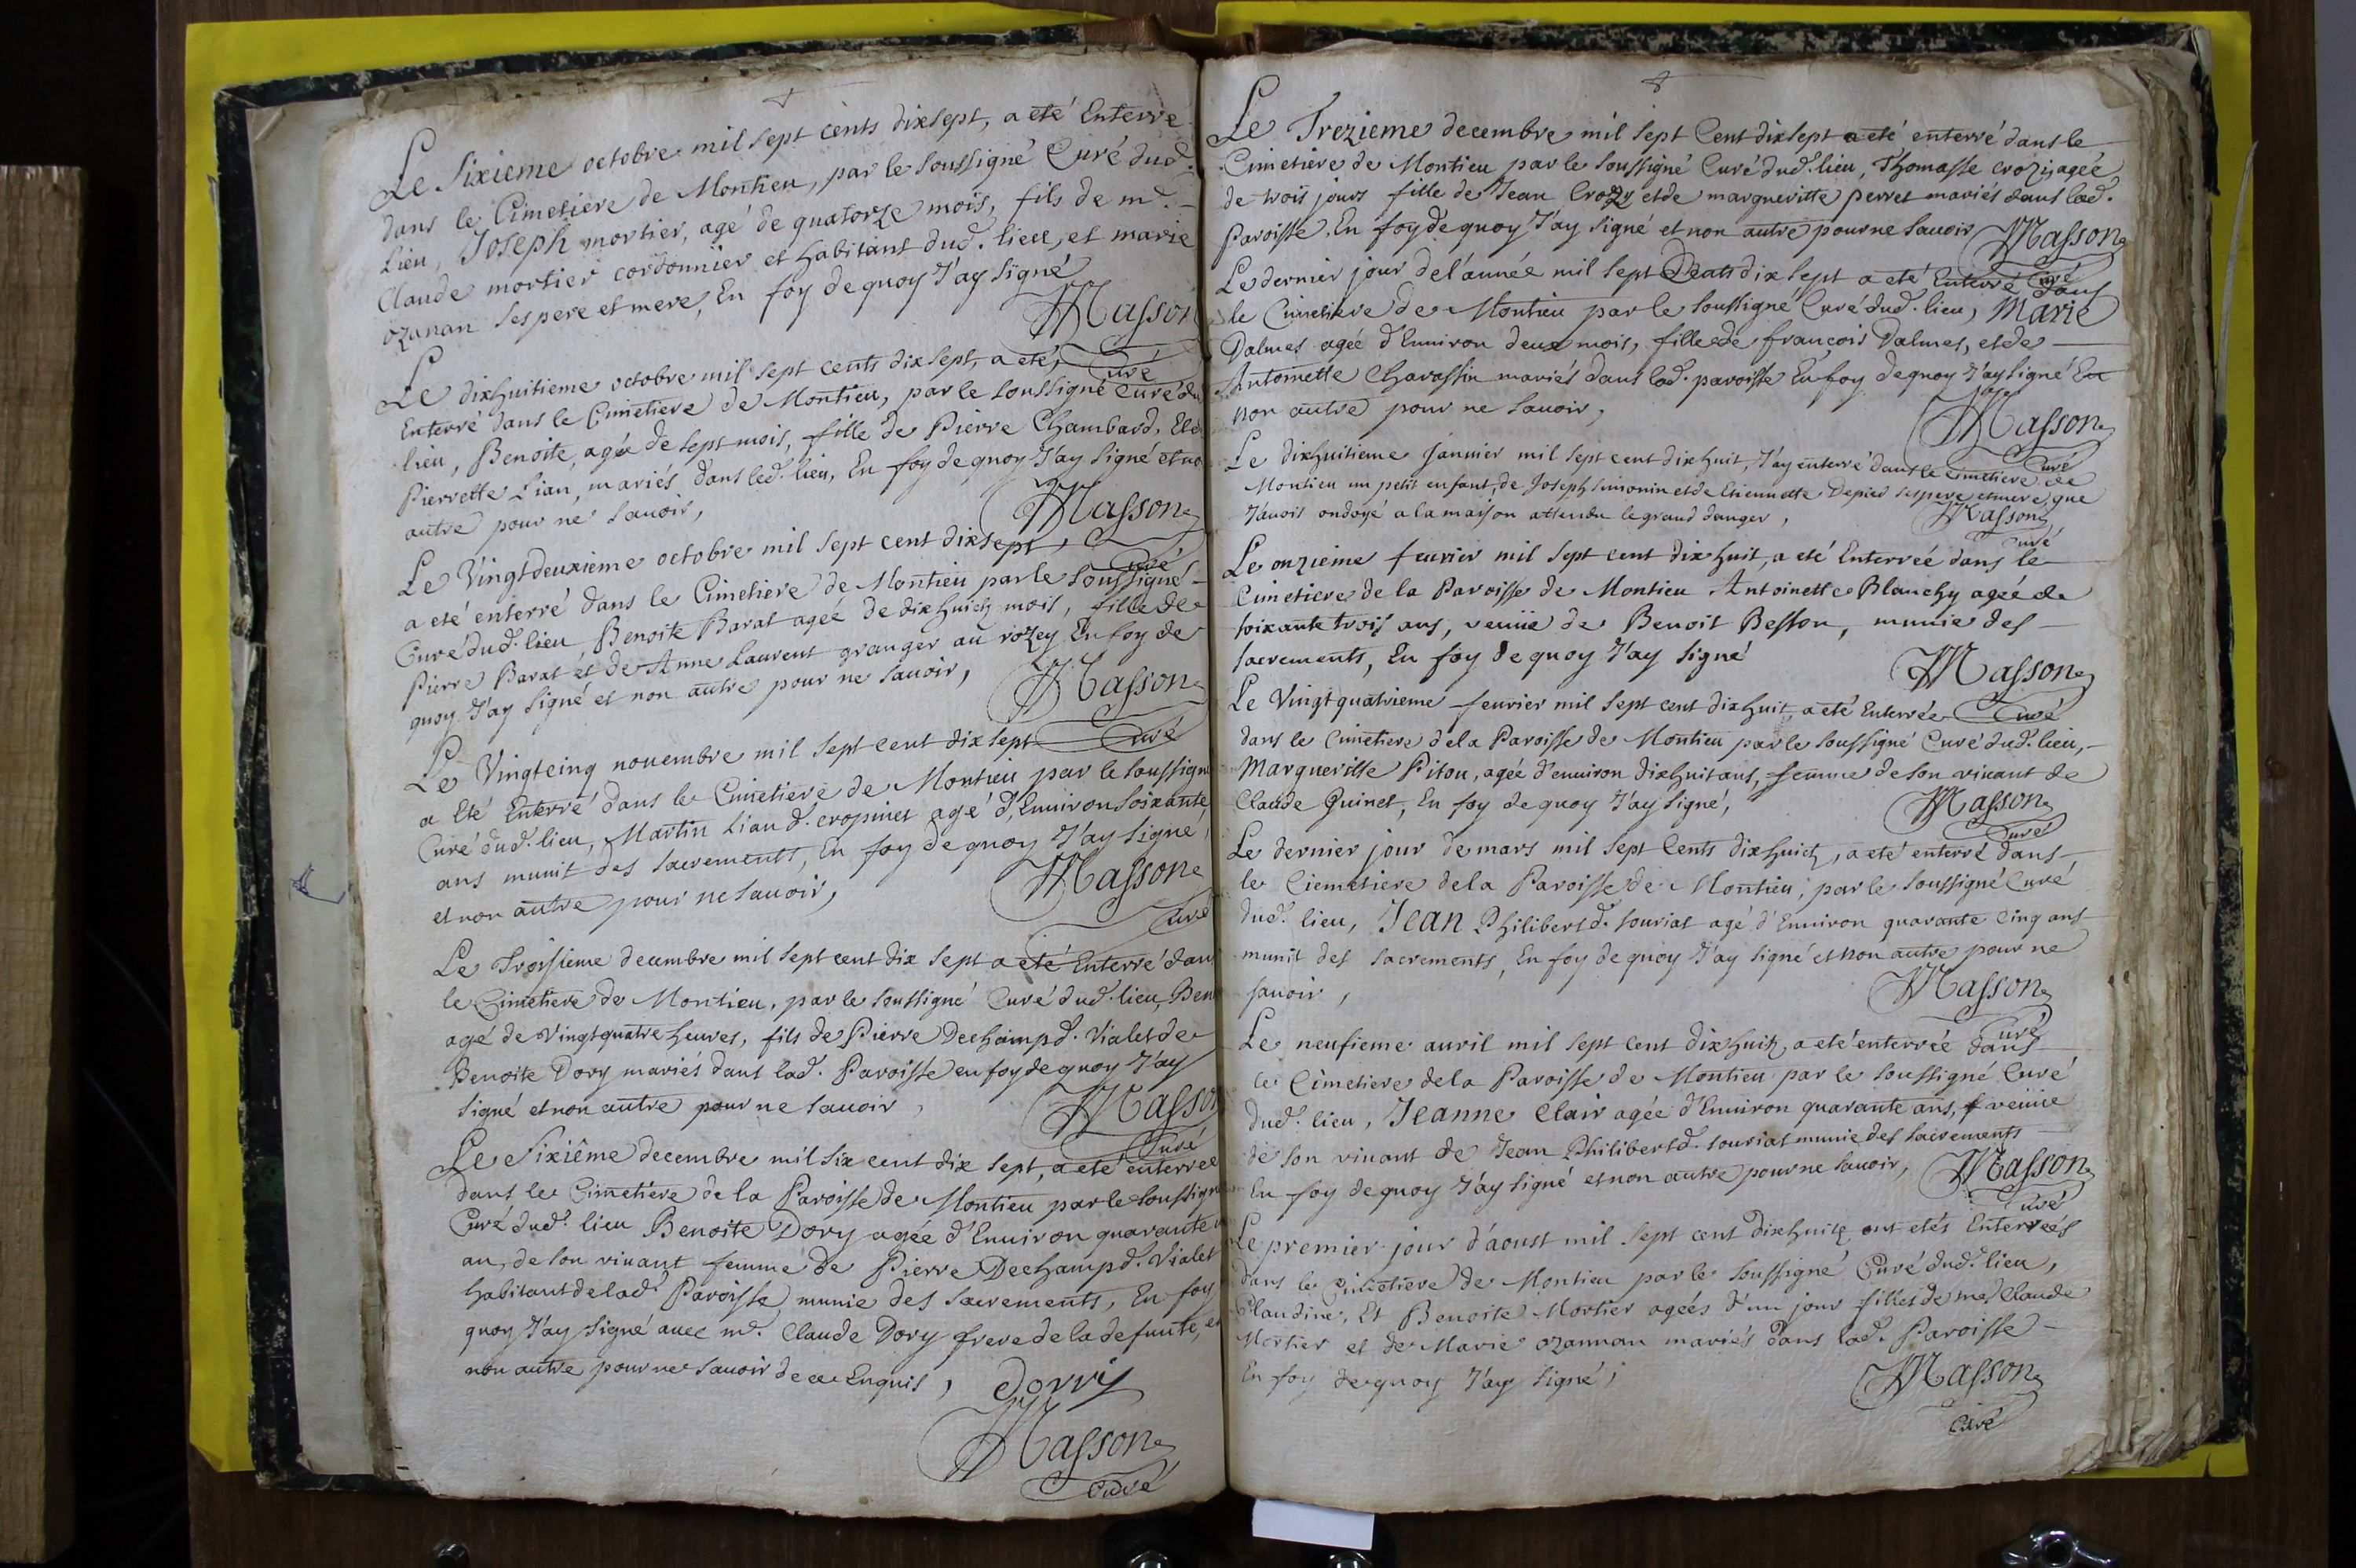 Le Sixieme octobre mil sept cents dixsept, a eté Enterré
dans le Cimetiere de Montieu, par le soussigné Curé dud.
Lieu, Joseph mortier, agé de quatorze mois, fils de m.
Claude mortier cordonnier et habitant dud. lieu, et marie
ozanan ses pere et mere, En foy de quoy J'ay signé
Masson
Curé
Le dixhuitieme octobre mil sept cents dixsept, a eté,
Enterré dans le Cimetiere de Montieu, par le soussigné Curé du
lieu, Benoite, agée de sept mois, fille de Pierre Chambard, Et
Pierrette Lian, mariés dans led. lieu, En foy de quoy J'ay signé et no
autre pour ne sauoir,
Masson
Curé
Le Vingtdeuxieme octobre mil sept cent dixsept,
a eté enterré dans le Cimetiere de Montieu par le soussigné
Curé dud. lieu, Benoite Barat agée de dixhuich mois, fille de
Pierre Barat et de Anne Laurent granger au rozey En foy de
quoy J'ay signé et non autre pour ne sauoir,
Masson
Curé
Le Vingtcinq nouembre mil sept cent dix sept
a Eté Enterré dans le Cimetiere de Montieu par le soussigné
Curé dud. lieu, Martin Lian d. cropinet agé d'Enuiron soixante
ans munit des sacrements, En foy de quoy J'ay signé,
et non autre pour ne sauoir,
Masson
Curé
Le Troisieme decembre mil sept cent dix sept a eté Enterré dan
le Cimetiere de Montieu, par le soussigné Curé dud. lieu, Ben
agé de Vingtquatre heures, fils de Pierre Dechamp d. Vialet de
Benoite Dory mariés dans lad. Paroisse en foy de quoy J'ay
signé et non autre pour ne sauoir,
Masson
Curé
Le Sixième decembre mil six cent dix sept, a eté enterrée
dans le Cimetiere de la Paroisse de Montieu par le soussigné
Curé dud. lieu Benoite Dory agée d'Enuiron quarante
an, de son viuant femme de Pierre Dechamp d. Vialet
habitant de lad. Paroisse munie des sacrements, En foy
quoy J'ay signé auec m. Claude Dory frere de la defunte, et
non autre pour ne sauoir de ce Enquis,
Dorry
Masson
Curé
Le Trezieme decembre mil sept Cent dixsept a eté enterré dans le
Cimetiere de Montieu par le soussigné Curé dud. lieu, Thomasse crozy agée
de trois jours fille de Jean Crozy et de margueritte perret mariés dans lad.
Paroisse, En foy de quoy J'ay signé et non autre pour ne sauoir
Masson
Curé
Le dernier jour de l'année mil sept Cents dix sept a eté Enterré dans
le Cimetiere de Montieu par le soussigné Curé dud. lieu, Marie
Dalmes agée d'Enuiron deux mois, fille de françois Dalmes, et de
Antoinette Charassin mariés dans lad. paroisse En foy de quoy J'ay signé Et
non autre pour ne sauoir,
Masson
Curé
Le dixhuitieme Januier mil sept cent dixhuit, J'ay enterré dans le Cimetiere de
Montieu un petit enfant, de Joseph simonin et de Etiennette Depied ses pere et mere, que
J'auois ondoyé a la maison attendu le grand danger,
Masson
Curé
Le onzieme feurier mil sept cent dix huit, a eté Enterrée dans le
Cimetiere de la Paroisse de Montieu Antoinette Blanchy agée de
soixante trois ans, veuue de Benoit Besson, munie des
sacrements, En foy de quoy J'ay signé
Masson
Curé
Le Vingtquatrieme feurier mil sept cent dixhuit, a eté Enterrée
dans le Cimetiere de la Paroisse de Montieu par le soussigné Curé dud. lieu,
Margueritte Pitou, agée d'enuiron dixhuit ans, femme de son viuant de
Claude Guinet, En foy de quoy J'ay signé,
Masson
Curé
Le dernier jour de mars mil sept Cents dixhuich, a eté enterré dans
le Ciemetiere de la Paroisse de Montieu, par le soussigné Curé
dud. lieu, Jean Philibert d. souriat agé d'Enuiron quarante cinq ans
munit des sacrements, En foy de quoy J'ay signé et non autre pour ne
sauoir,
Masson
Curé
Le neufieme auril mil sept cent dixhuit, a eté enterrée dans
le Cimetiere de la Paroisse de Montieu par le soussigné Curé
dud. lieu, Jeanne Clair agée d'Enuiron quarante ans, veuue
de son viuant de Jean Philibert d. souriat munie des sacrements
En foy de quoy J'ay signé et non autre pour ne sauoir,
Masson
Curé
Le premier jour d'aoust mil sept cent dixhuit, ont etés Enterreés
dans le Cimetiere de Montieu par le soussigné Curé dud. lieu,
Claudine, Et Benoite Mortier ageés d'un jour filles de me. Claude
Mortier et de Marie ozannan mariés dans lad. Paroisse
En foy de quoy J'ay signé;
Masson
Curé